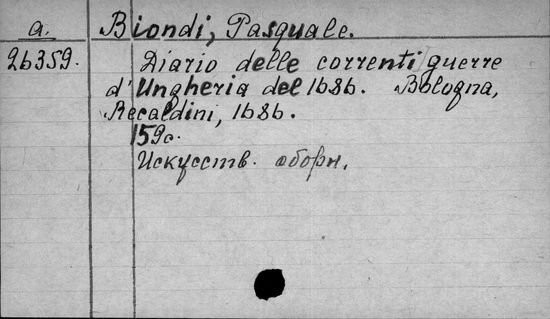 a.
Biondi, Pasquale.
26359.
Diario delle correnti guerre
d'Ungheria del 1686. Bologna,
Recaldini, 1686.
159c.
Искусств. сборн.